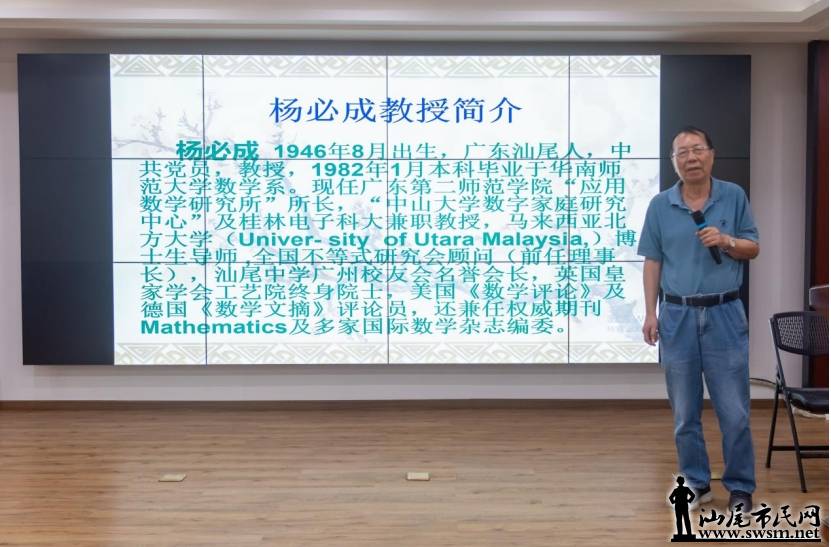 杨必成教授简介
杨必成 1946年8月出生，广东汕尾人，中
共党员，教授，1982年1月本科毕业于华南师
范大学数学系。现任广东第二师范学院“应用
数学研究所”所长，“中山大学数字家庭研究
中心”及桂林电子科大兼职教授，马来西亚北
方大学（Univer- sity of Utara Malaysia,）博
士生导师,全国不等式研究会顾问（前任理事
长），汕尾中学广州校友会名誉会长，英国皇
家学会工艺院终身院士，美国《数学评论》及
德国《数学文摘》评论员，还兼任权威期刊
Mathematics及多家国际数学杂志编委。
汕尾市民网
www.swsm.net